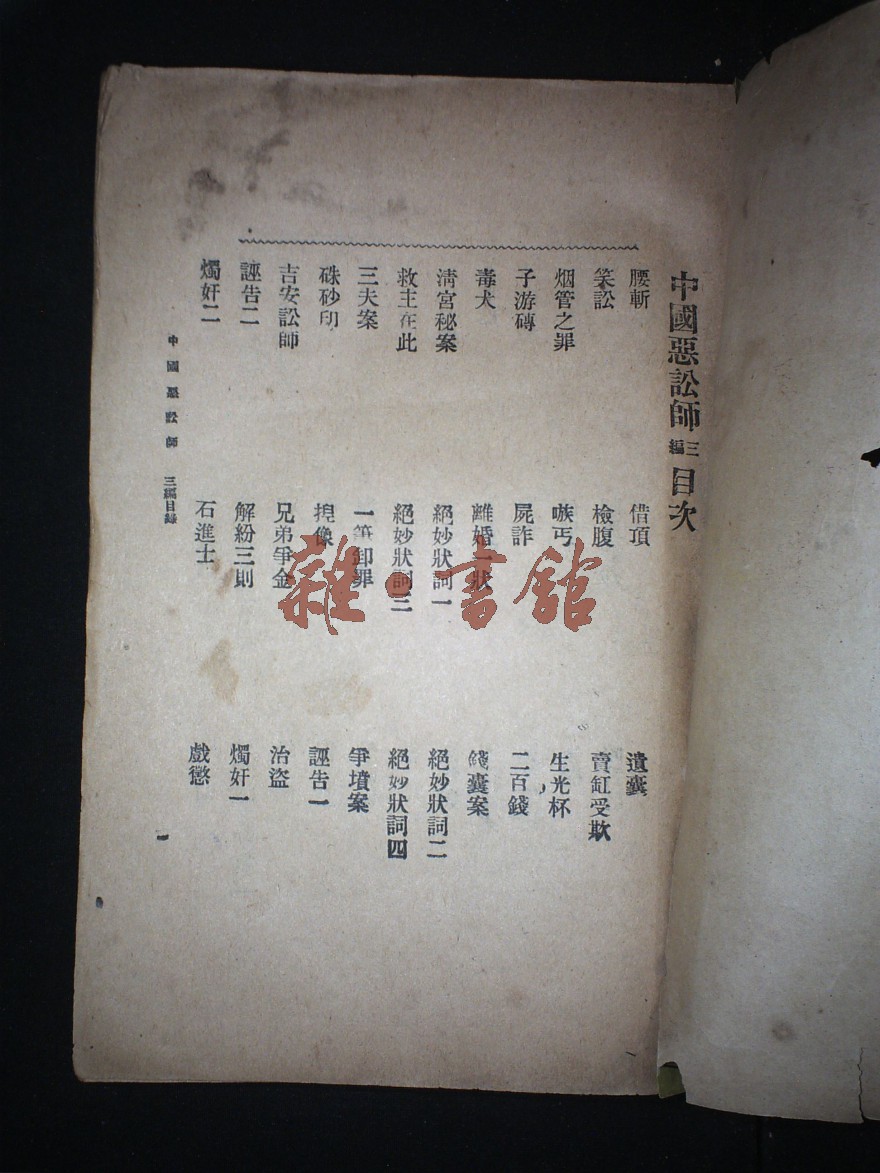 中國惡訟師三編目次
腰斬 借項 遺囊
訟 檢腹 賣缸受欺
烟管之罪 嗾丐 生光杯
子游磚 屍詐 二百錢
毒犬 離婚一狀 錢囊案
清宮秘案 絕妙狀詞一 絕妙狀詞二
救主在此 絕妙狀詞三 絕妙狀詞四
三夫案 一筆卸罪 爭墳案
硃砂印 捏像 誣告一
吉安訟師 兄弟爭金 治盜
誣告二 解紛三則 燭奸一
燭奸二 石進士 戲懲
中國惡訟師 三編目錄
一
雜·書館